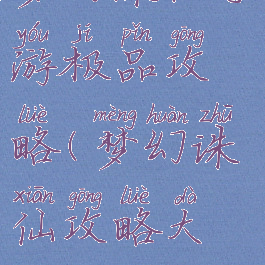 yóu jí pǐn gōng
游极品攻
lüè mèng huàn zhū
略(梦幻诛
xiān gōng lüè dà
仙攻略大